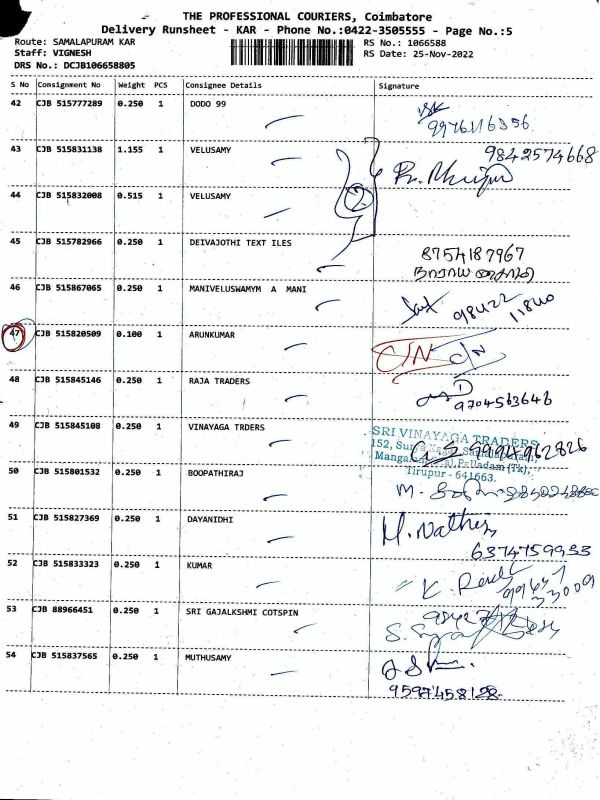 THE PROFESSIONAL COURIERS, Coimbatore
Delivery Runsheet - KAR - Phone No.:0422-3505555 - Page No.:5
Route: SAMALAPURAM KAR
RS No.: 1066588
Staff: VIGNESH
RS Date: 25-Nov-2022
DRS No.: DCJB106658805
S No Consignment No Weight PCS Consignee Details Signature
42 CJB 515777289 0.250 1 DODO 99
9976116356
43 CJB 515831138 1.155 1 VELUSAMY 9842574668
2
44 CJB 515832008 0.515 1 VELUSAMY
45 CJB 515782966 0.250 1 DEIVAJOTHI TEXT ILES
8754187967
46 CJB 515867065 0.250 1 MANIVELUSWAMYM A MANI
98422
11840
47 CJB 515820509 0.100 1 ARUNKUMAR
C/N C/N
48 CJB 515845146 0.250 1 RAJA TRADERS
9704563646
49 CJB 515845108 0.250 1 VINAYAGA TRDERS
SRI VINAYAGA TRADERS
152,
9994962826
Palladam (Tk),
Tirupur - 641663.
50 CJB 515801532 0.250 1 BOOPATHIRAJ
M.
51 CJB 515827369 0.250 1 DAYANIDHI
6374759953
52 CJB 515833323 0.250 1 KUMAR
K.
53 CJB 88966451 0.250 1 SRI GAJALKSHMI COTSPIN
54 CJB 515837565 0.250 1 MUTHUSAMY
9597458128